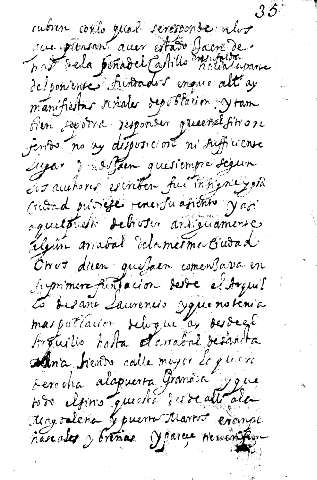 35
cubren con lo qual se responde a los
que piensan aver estado Jaen de
tras de la peña del Castillo hacia la parte
del poniente fundados en que alli ay
manifiestas señales de poblacion y tam
bien se podra responder que en el sitio re
ferido no ay disposicion ni sufficiente
lugar Jaen que siempre segun
los autores escriben fue insigne
Ciudad pudiese tener su asiento y asi
aquel puesto debio ser antiguamente
algun arrabal de la mesma Ciudad
Otros dicen que Jaen comensava en
su primera fundacion desde el Arqui
llo de Sanc Laurencio y que no tenia
mas poblacion de lo que ay desde el
Arquillo hasta el arrabal de Sancta
Ana siendo calle
derecha a la puerta Granada y que
todo el sitio que desde alli a la
Magdalena y puerta Martos eran
y breñas y parece